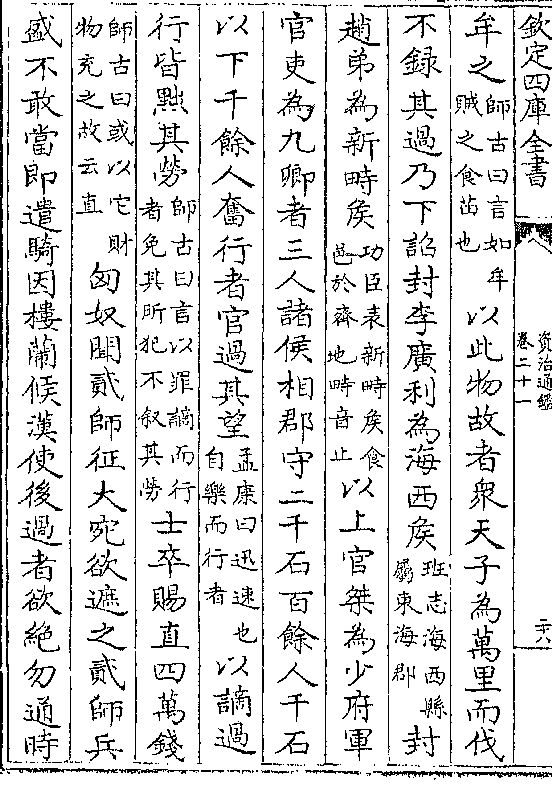 欽定四庫全書
資治通鑑
卷二十一
二十八
牟之師古曰言如牟賊之食苗也以此物故者衆天子為萬里而伐
不録其過乃下詔封李廣利為海西侯班志海西縣屬東海郡封
趙弟為新畤侯功臣表新畤侯食邑於齊地畤音止以上官桀為少府軍
官吏為九卿者三人諸侯相郡守二千石百餘人千石
以下千餘人奮行者官過其望孟康曰迅速也自樂而行者以謫過
行皆黜其勞師古曰言以罪謫而行者免其所犯不叙其勞士卒賜直四萬錢
師古曰或以它財物充之故云直匈奴聞貳師征大宛欲遮之貳師兵
盛不敢當即遣騎因樓蘭候漢使後過者欲絶勿通時